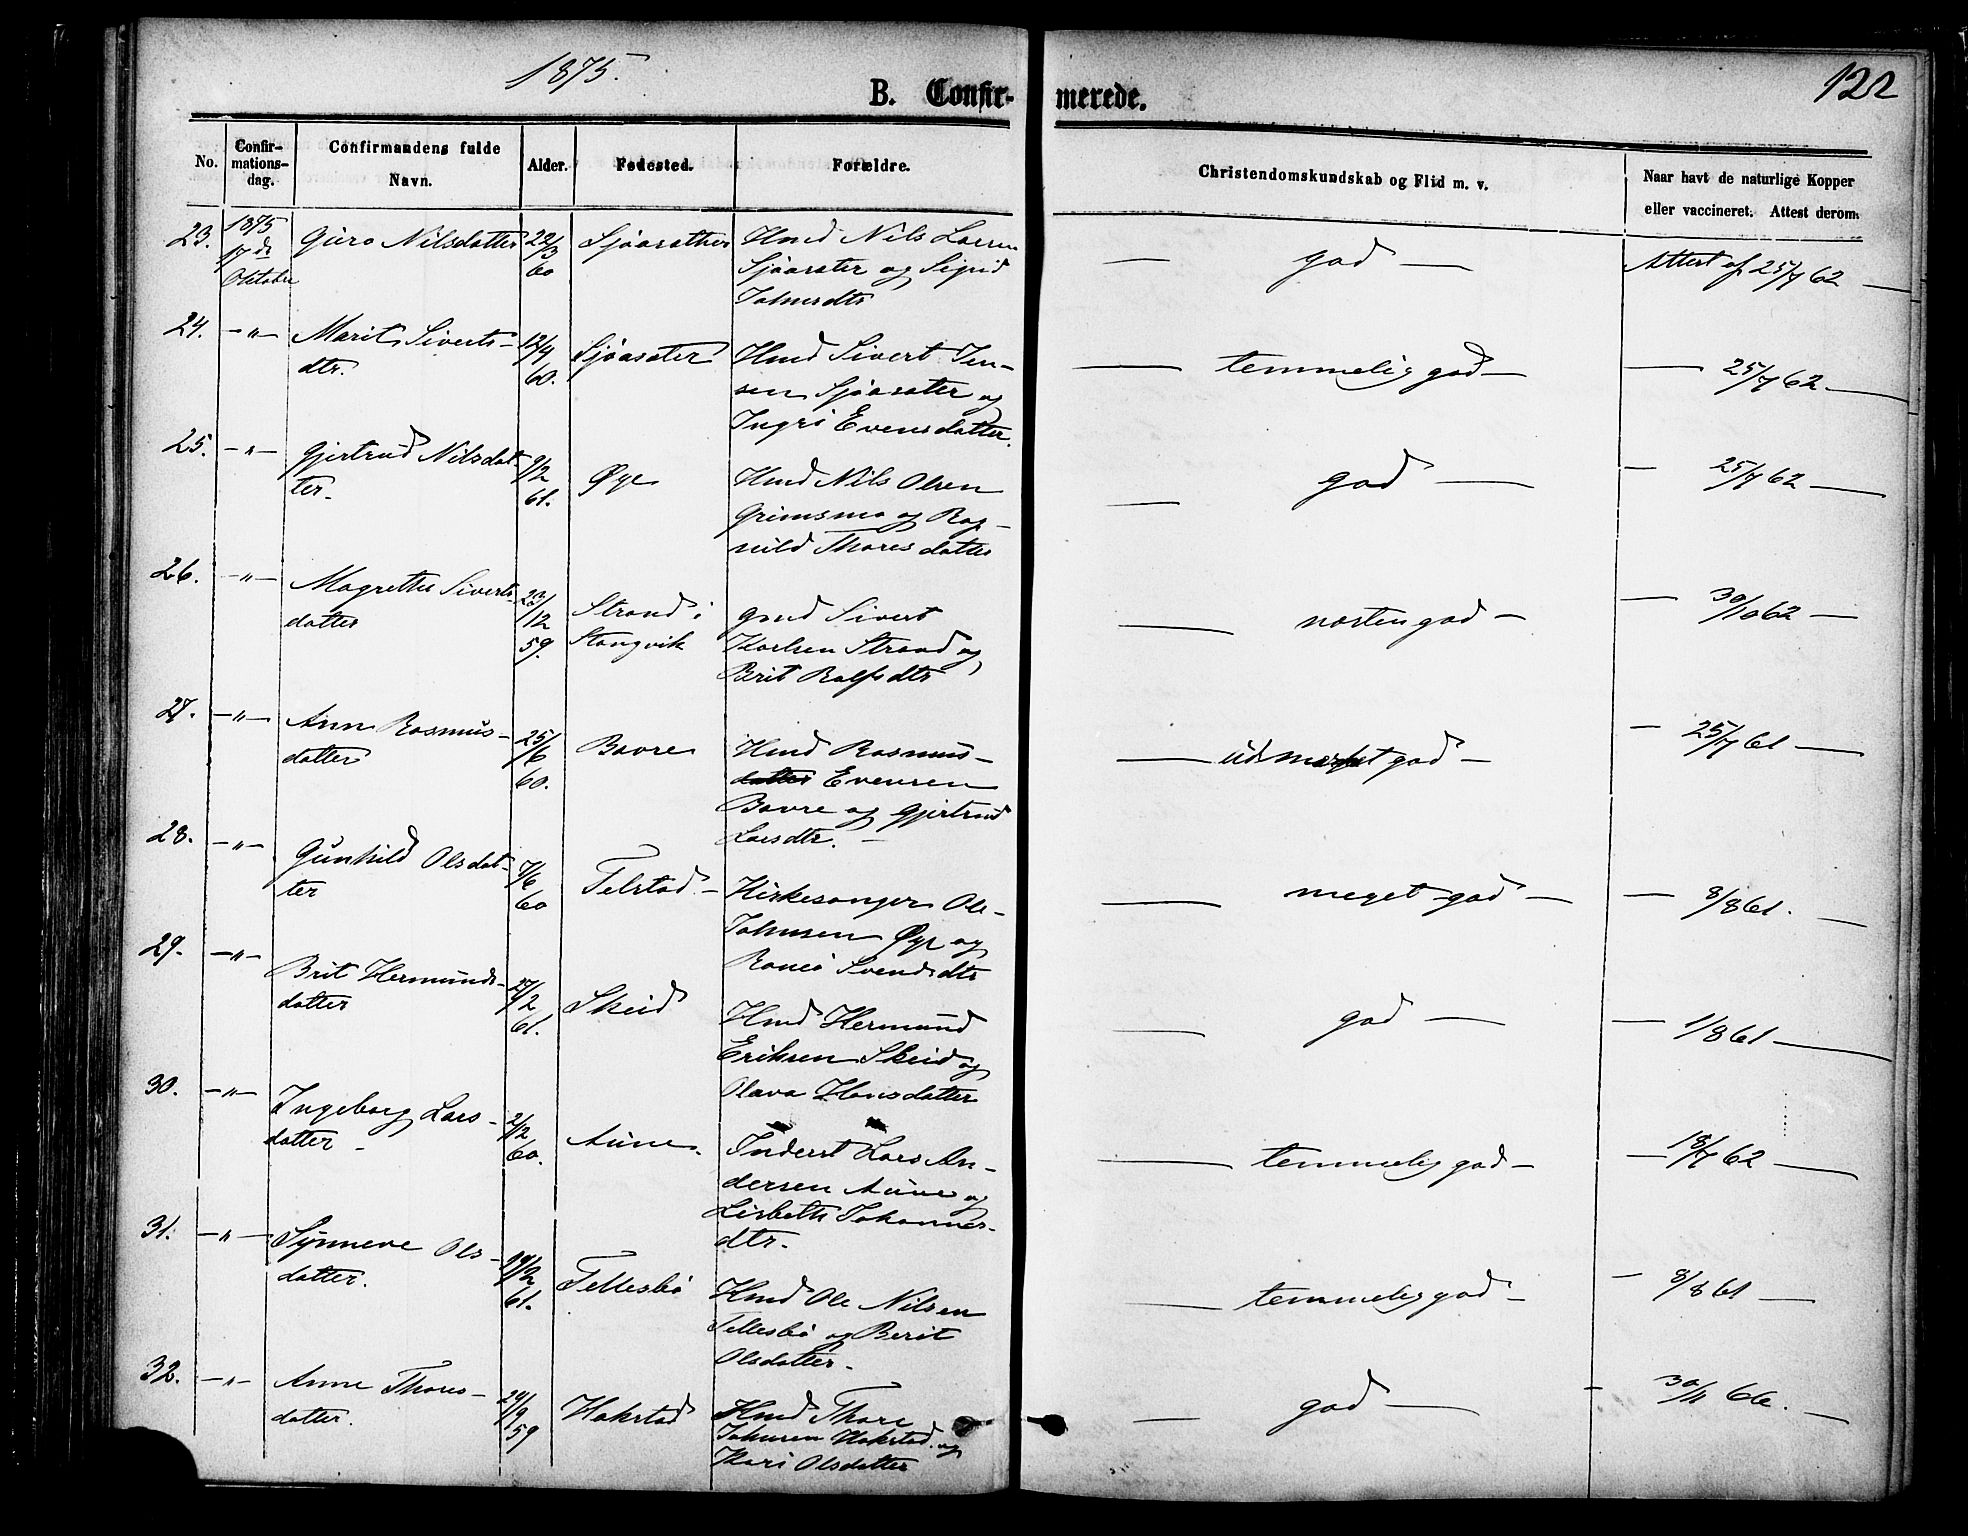 1875.
122
B. Confir- merede.
No.
Confir-
mations-
dag.
Confirmandens fulde
Navn.
Alder.
Fødested.
Forældre.
Christendomskundskab og Flid m. v.
Naar havt de naturlige Kopper
eller vaccineret. Attest derom.
23.
1875
17de
Oktober
Guro Nilsdatter
22/3
60
Sjøasæther
Hmd Nils Larsen
Sjøasæter og Sigrid
Johnsdtr
— god —
Attest af 25/7 62 —
24.
—"—
Marit Siverts-
dtr.
12/9
60.
Sjøasæter
Hmd Sivert Jen-
sen Sjøasæter og
Ingri Evensdatter.
— temmelig god —
— 25/7 62 —
25.
—"—
Gjertrud Nilsdat-
ter.
9/2
61.
Øye
Hmd Nils Olsen
Grimsmo og Rag-
nild Thoresdatter
— god —
— 25/7 62 —
26.
—"—
Magrethe Siverts-
datter
23/12
59.
Strand i
Stangvik
Gmd Sivert
Karlsen Strand og
Brit Rolfsdtr
— næsten god —
— 30/10 62 —
27.
—"—
Ann Rasmus-
datter
25/6
60.
Bøvre
Hmd Rasmus-
datter Evensen
Bøvre og Gjertrud
Larsdtr. —
— udmærket god —
— 25/7 61 —
28.
—"—
Gunhild Olsdat-
ter
7/6
60
Telstad —
Kirkesanger Ole
Johnsen Øye og
Svendsdtr
— meget god —
— 8/8 61. —
29.
—"—
Brit Hermunds-
datter
27/2
61.
Skeid
Hmd Hermund
Eriksen Skeid og
Olava Hansdatter
— god —
— 1/8 61 —
30.
—"—
Ingeborg Lars-
datter —
2/12
60.
Aune.
Inderst Lars An-
dersen Aune og
Lisbeth Johannes-
dtr.
— temmelig god —
— 18/7 62 —
31.
—"—
Synneve Ols-
datter.
61.
Tellesbø
Hmd Ole Nilsen
Tellesbø og Berit
Olsdatter.
— temmelig god —
— 8/8 61 —
32.
—"—
Anne Thores-
datter.
29/9
59
Hakstad
Hmd Thore
Johnsen Hakstad og
Kari Olsdatter
— god —
— 30/11 66. —